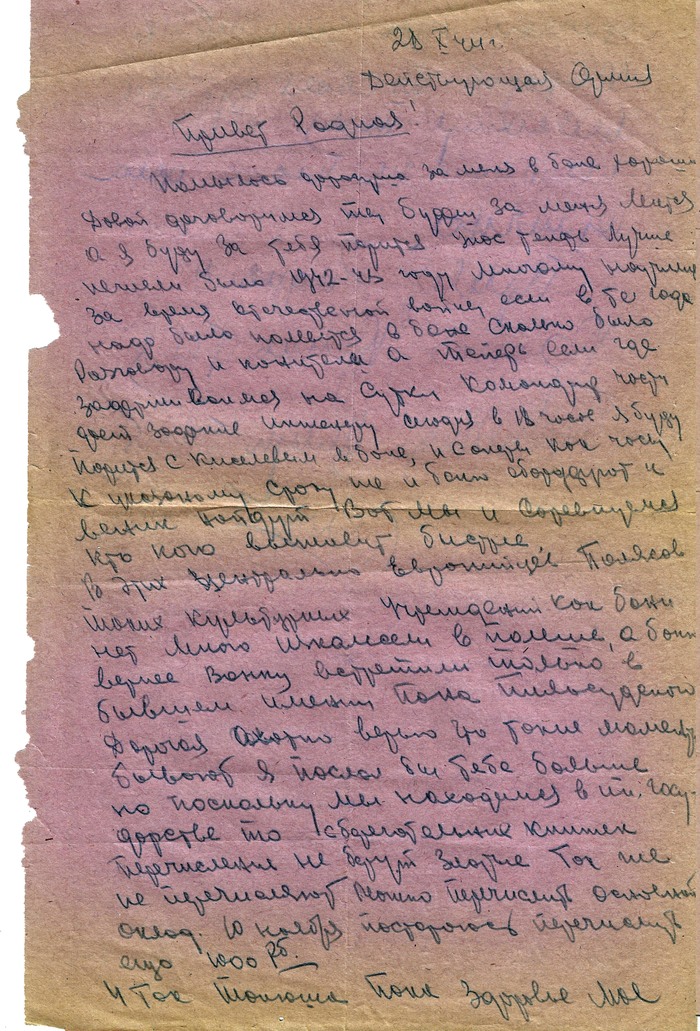 28 X 44 г.
Действующая Армия
Привет Родная!
Помылось дорогуша за меня в бане хорошо
Давай договоримся ты будеш за меня
а я буду за тебя парится У нас теперь лучше
нежели было 1942-43 году многому научил
за время отечественной войны если в те года
надо было помытся в бане сколько было
Разговору и а теперь если где
на сутки командир части
дает задание инженеру сегодня в 18 часов я буду
парится с Киселевем в бане, и сапер как часы
к указаному сроку те и баню оборудуют и
веник найдут Вот мы и соревнуемся
кто кого выставит быстрее
В этих центрально европейцев Поляков
таких культурных учреждений как бани
нет много искалесели в польше, а баню
вернее ванну встретили только в
бывшем имении Пана Пилсудского
Дорогая охотно верью что такие моменты
бывают я послал бы тебе больше
но поскольку мы находимся в ин. госу-
дарстве то сберегательных книжек
перечисления не берут Злотые так же
не перечисляют можно перечислить основной
оклад. 10 ноября постораюсь перечислить
ещо 1000 Рб.
И так Тонюша пока Здоровье мое